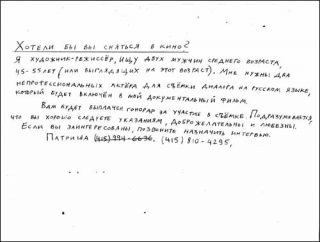 Хотели бы вы сняться в кино?
Я художник-режиссёр, ищу двух мужчин среднего возраста,
45-55 лет (или выглядящих на этот возраст). Мне нужны два
непрофессиональных актёра для съёмки диалога на русском языке,
который будет включён в мой документальный фильм.
Вам будет выплачен гонорар за участие в съёмке. Подразумевается,
что вы хорошо следуете указаниям, доброжелательны и любезны.
Если вы заинтересованы, позвоните назначить интервью.
Патриша (415) 994-6636. (415) 810-4295.